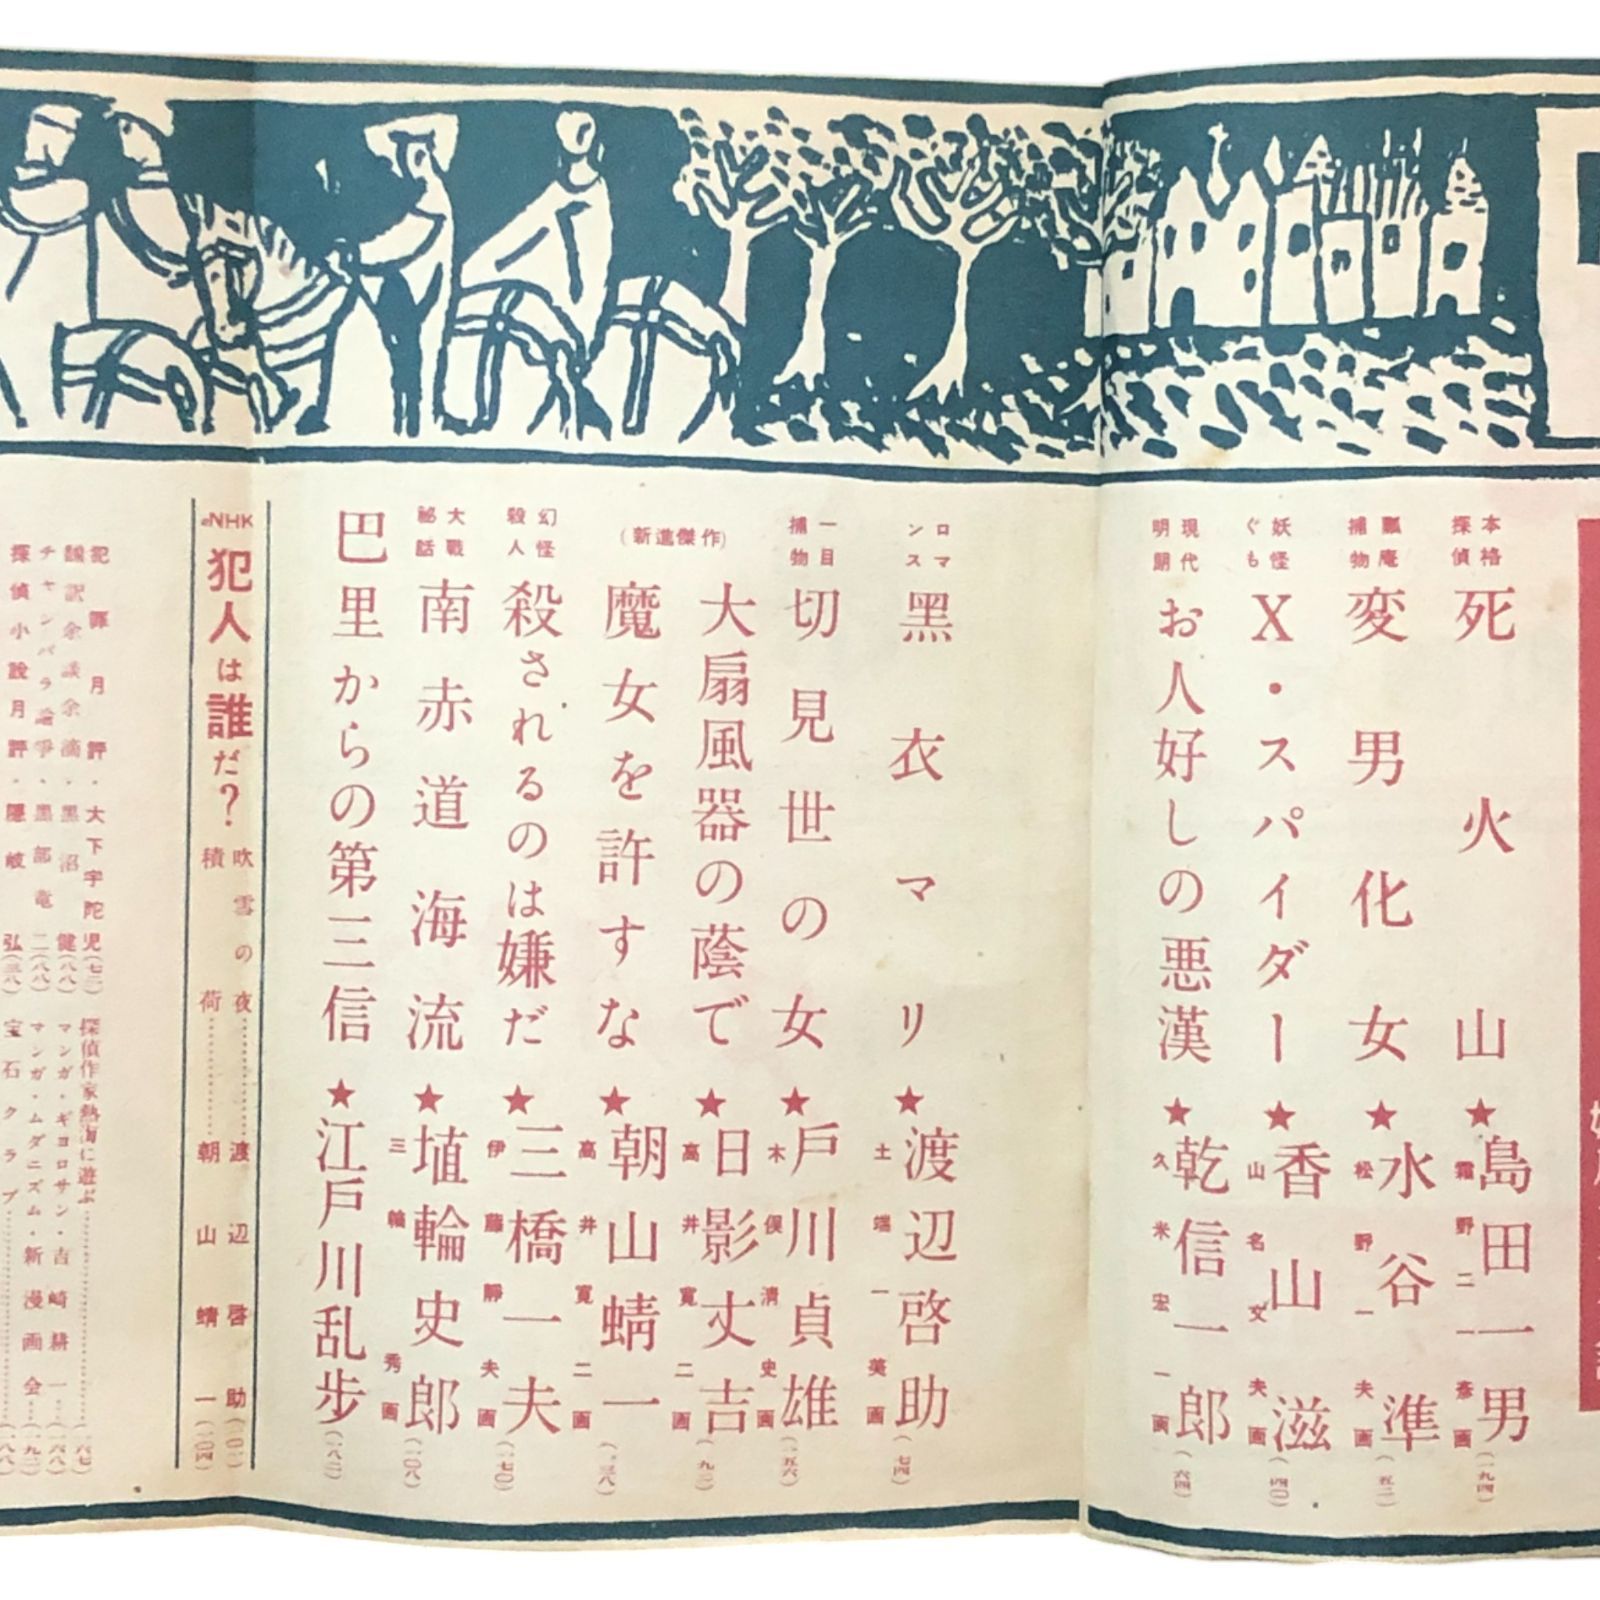 本格探偵 死火山 ★ 島田一男 霜野二一彦画 (一九四)
瓢庵捕物 変男化女 ★ 水谷準 松野一夫画 (五二)
妖怪ぐも X・スパイダー ★ 香山滋 山名文夫画 (一四〇)
現代明朗 お人好しの悪漢 ★ 乾信一郎 久米宏一画 (六四)
ロマンス 黒衣マリ ★ 渡辺啓助 土端一美画 (七四)
一目捕物 切見世の女 ★ 戸川貞雄 木俣清史画 (一五六)
(新進傑作)
大扇風器の蔭で ★ 日影丈吉 高井寛二画 (九二)
魔女を許すな ★ 朝山蜻一 高井寛二画 (一三八)
幻怪殺人 殺されるのは嫌だ ★ 三橋一夫 伊藤静夫画 (一七〇)
大戦秘話 南赤道海流 ★ 埴輪史郎 三輪秀画 (一〇八)
巴里からの第三信 ★ 江戸川乱歩 (一八二)
NHK 犯人は誰だ?
吹雪の夜 渡辺啓助 (二〇二)
積荷 朝山蜻一 (二〇四)
犯罪月評・大下宇陀児 (七二)
飜訳余談余滴・黒沼健 (八八)
チャンバラ論争・黒部竜二 (八八)
探偵小説月評・隠岐弘 (三八)
探偵作家熱海に遊ぶ (一六七)
マンガ・ギヨロサン・吉崎耕一 (一六八)
マンガ・ムダニズム・新漫画会 (一九二)
宝石クラブ (一八八)